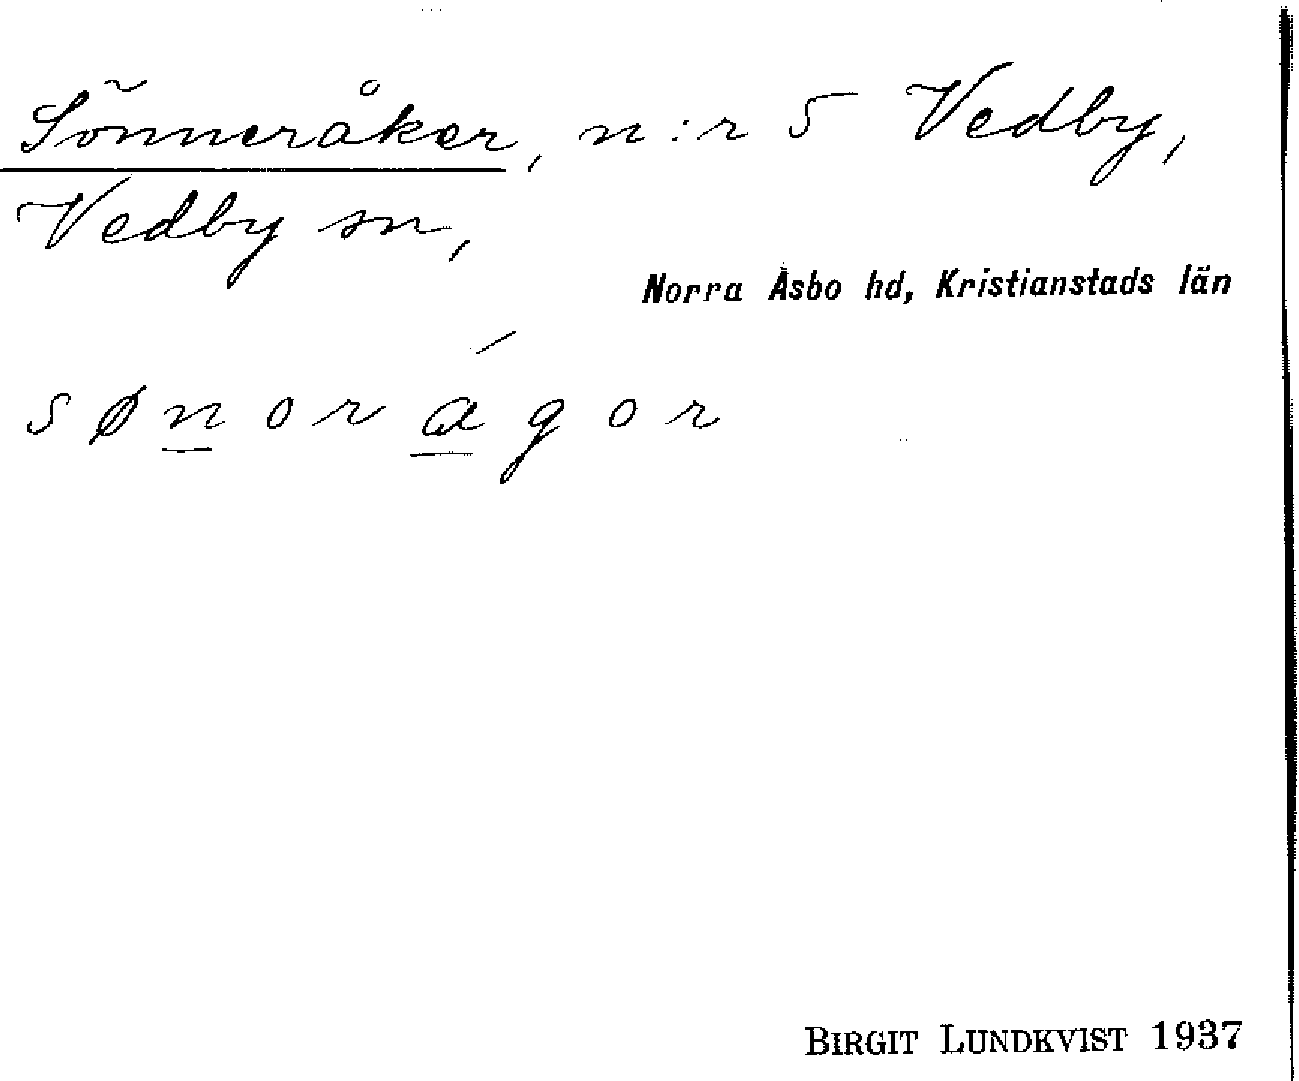 Sönneråker, n:r 5 Vedby,
Vedby sn,
Norra Åsbo hd, Kristianstads län
søn̲orά̲gor
BIRGIT LUNDKVIST 1937